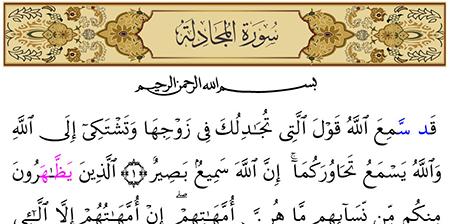 سُورَةُ المُجَادلَة
بِسْمِ اللهِ الرَّحْمَنِ الرَّحِيمِ
قَد سَّمِعَ ٱللَّهُ قَوْلَ ٱلَّتِى تُجَٰدِلُكَ فِى زَوْجِهَا وَتَشْتَكِىٓ إِلَى ٱللَّهِ
وَٱللَّهُ يَسْمَعُ تَحَاوُرَكُمَآ ۚ إِنَّ ٱللَّهَ سَمِيعٌۢ بَصِيرٌ ﴿١﴾ ٱلَّذِينَ يَظَّهَّرُونَ
مِنكُم مِّن نِّسَآئِهِم مَّا هُنَّ أُمَّهَٰتِهِمْ ۖ إِنْ أُمَّهَٰتُهُمْ إِلَّا ٱلَّٰٓـِٔى